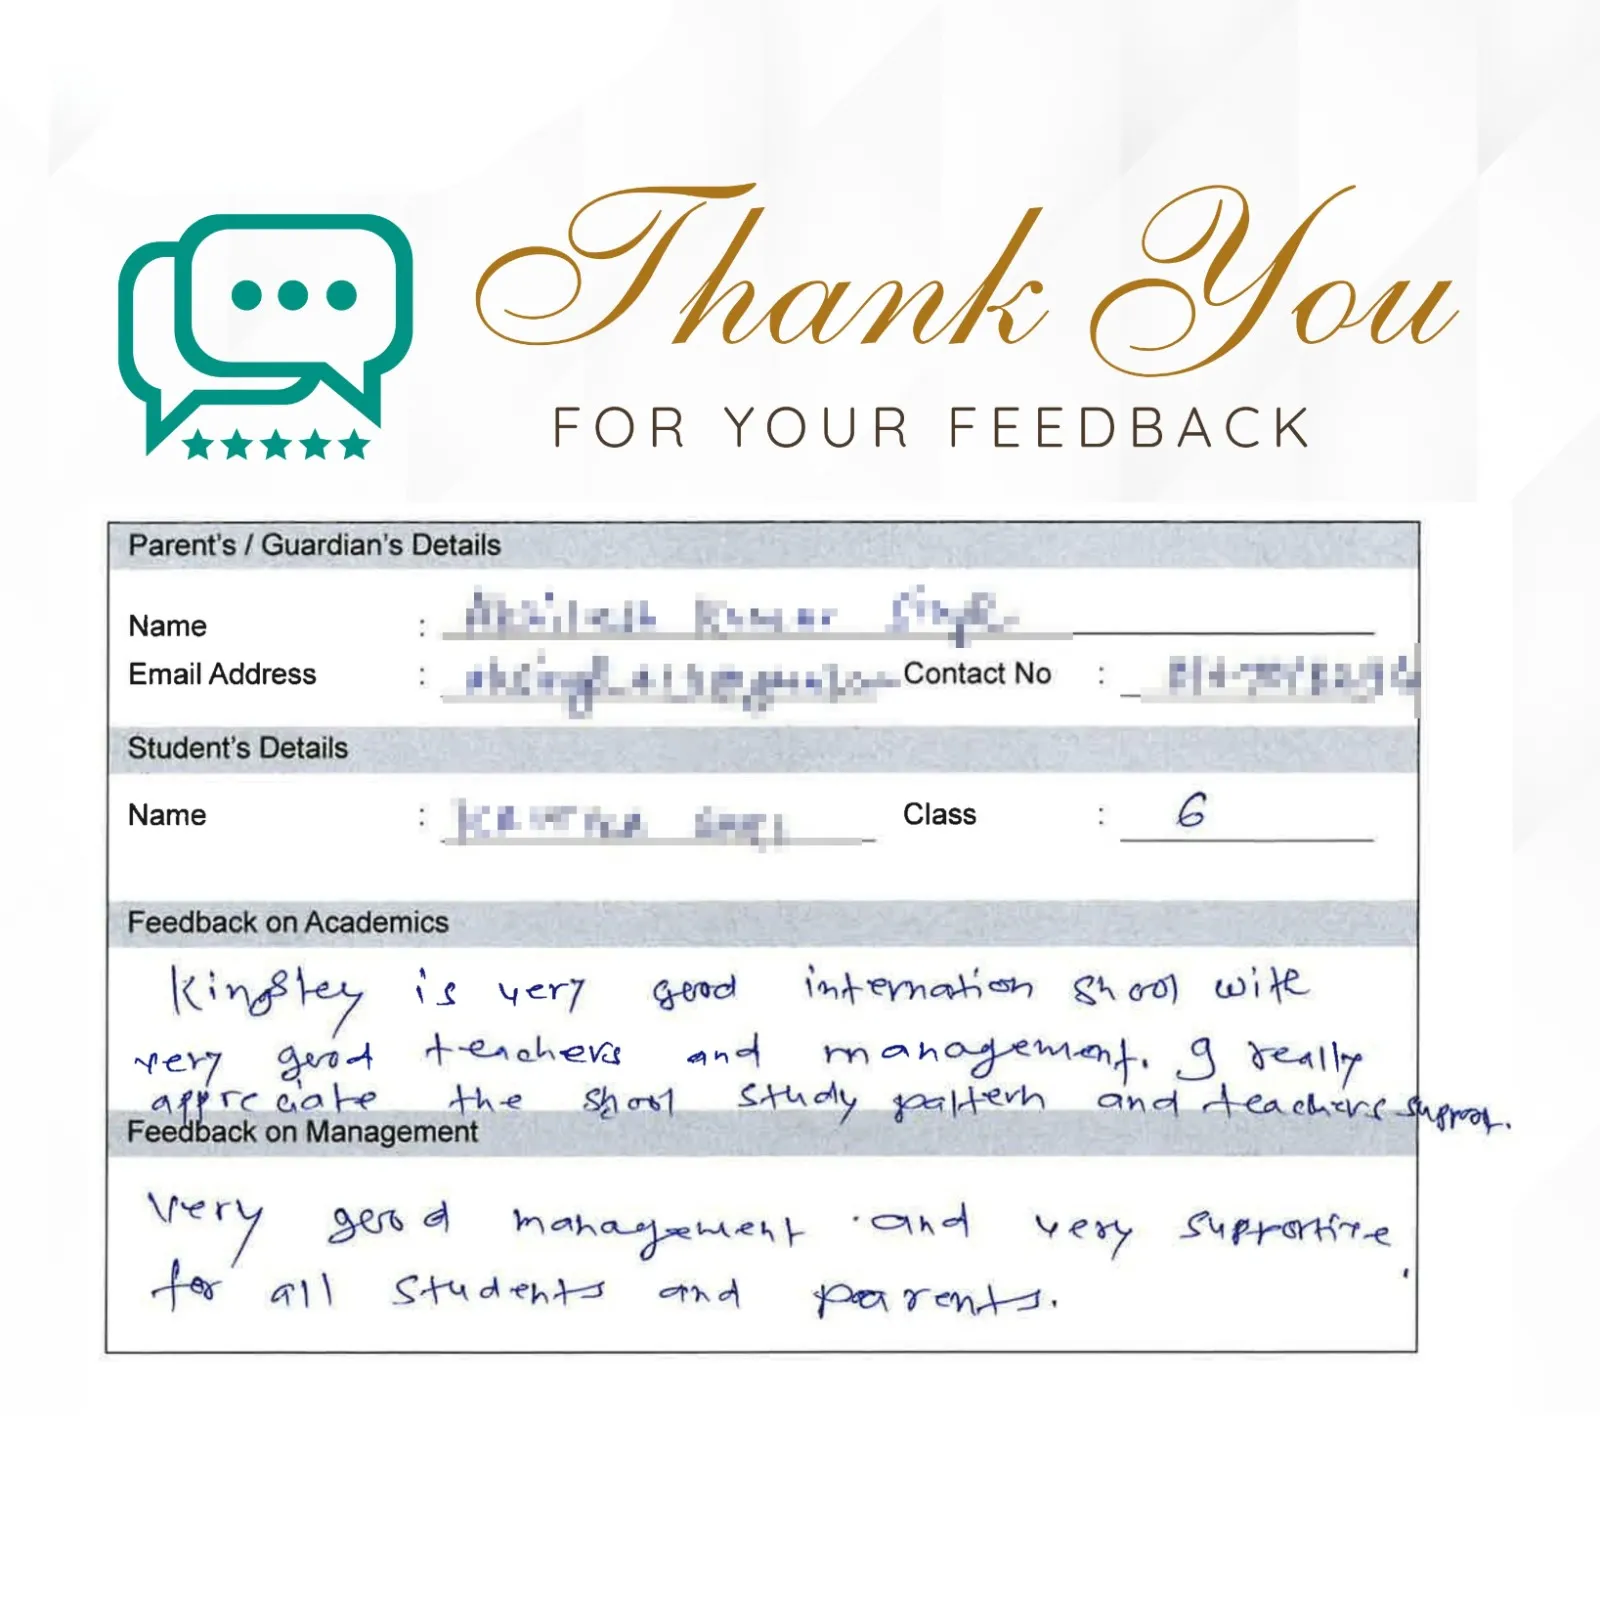 Thank You
FOR YOUR FEEDBACK
Parent's / Guardian's Details
Name :
Email Address : Contact No :
Student's Details
Name : Class : 6
Feedback on Academics
Kingsley is very good internation shool with
very good teachers and management. I really
appreciate the shool study pattern and teachers support.
Feedback on Management
Very good management and very supportive
for all students and parents.